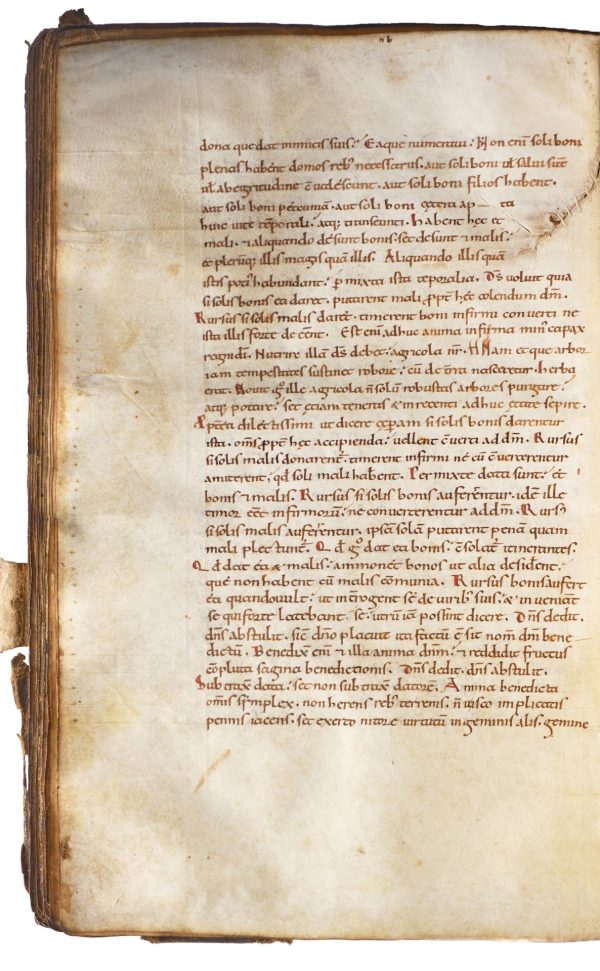 dona que dat inimicis suis. Ea que numeravi. Non enī soli boni
plenas habent domos reb; necessariis. aut soli boni ul salvi sūt
ul ab egritudine c̄valescunt. aut soli boni filios habent.
aut soli boni pecuniā. aut soli boni cetera ap ta
huic vite tēporali. atq; transeunti. Habent hec et
mali. & aliquando desunt bonis. set desunt & malis.
et plerūq; illis magis quā illis. Aliquando illis quā
istis poti' habundant. p mixta ista tēporalia. Ds voluit quia
si solis bonis ea daret. putarent mali ppt hec colendum dm̄.
Rursus si solis malis daret. timerent boni infirmi converti ne
ista illis forte deēēnt. Est enī adhuc anima infirma min' capax
regni di. Nutrire illam ds debet. agricola nr̄. Nam et que arbor
iam tempestates sustinet robore. cū de t̄ra nasceretur. herba
erat. Novit g° ille agricola n̄ solū robustas arbores purgare.
atq; potare. set etiam teneras & in recenti adhuc etate sepire.
Apterea dilectissimi ut dicere ceperam si solis bonis darentur
ista. om̄s ppt hec accipienda. vellent c̄verti ad dm̄. Rursus
si solis malis donarent̄. timerent infirmi ne cū c̄verterentur
amitterent. qd soli mali habēnt. Permixte data sunt. et
bonis & malis. Rursus si solis bonis auferentur. idem ille
timor eēt infirmoru. ne converterentur ad dm̄. Rurs'
si solis malis auferrentur. ipsā solā putarent penā quam
mali plecterent̄. Qd g° dat ea bonis. c̄solat̄ itinerantes.
Qd dat ea & malis. ammonet bonos ut alia desidēnt.
que non habent cū malis communia. Rursus bonis aufert
ea quando vult. ut int̄rogent se de virib; suis. & inveniant
se qui forte latebant se. utrū iā possint dicere. Dn̄s dedit.
dn̄s abstulit. sic dn̄o placuit ita factū ē sit nom̄ dm̄ bene
dictū. Benedixit en̄ & illa anima dnm. & reddidit fructus
cōpluta sagina benedictionis. Dn̄s dedit. dn̄s abstulit.
Subtraxit data. set non subtraxit datorē. Anima benedicta
om̄is simplex. non herens reb; terrenis. n̄ visco implicatis
pennis iacens. set exerto nitore virtutū in geminis alis. gemine